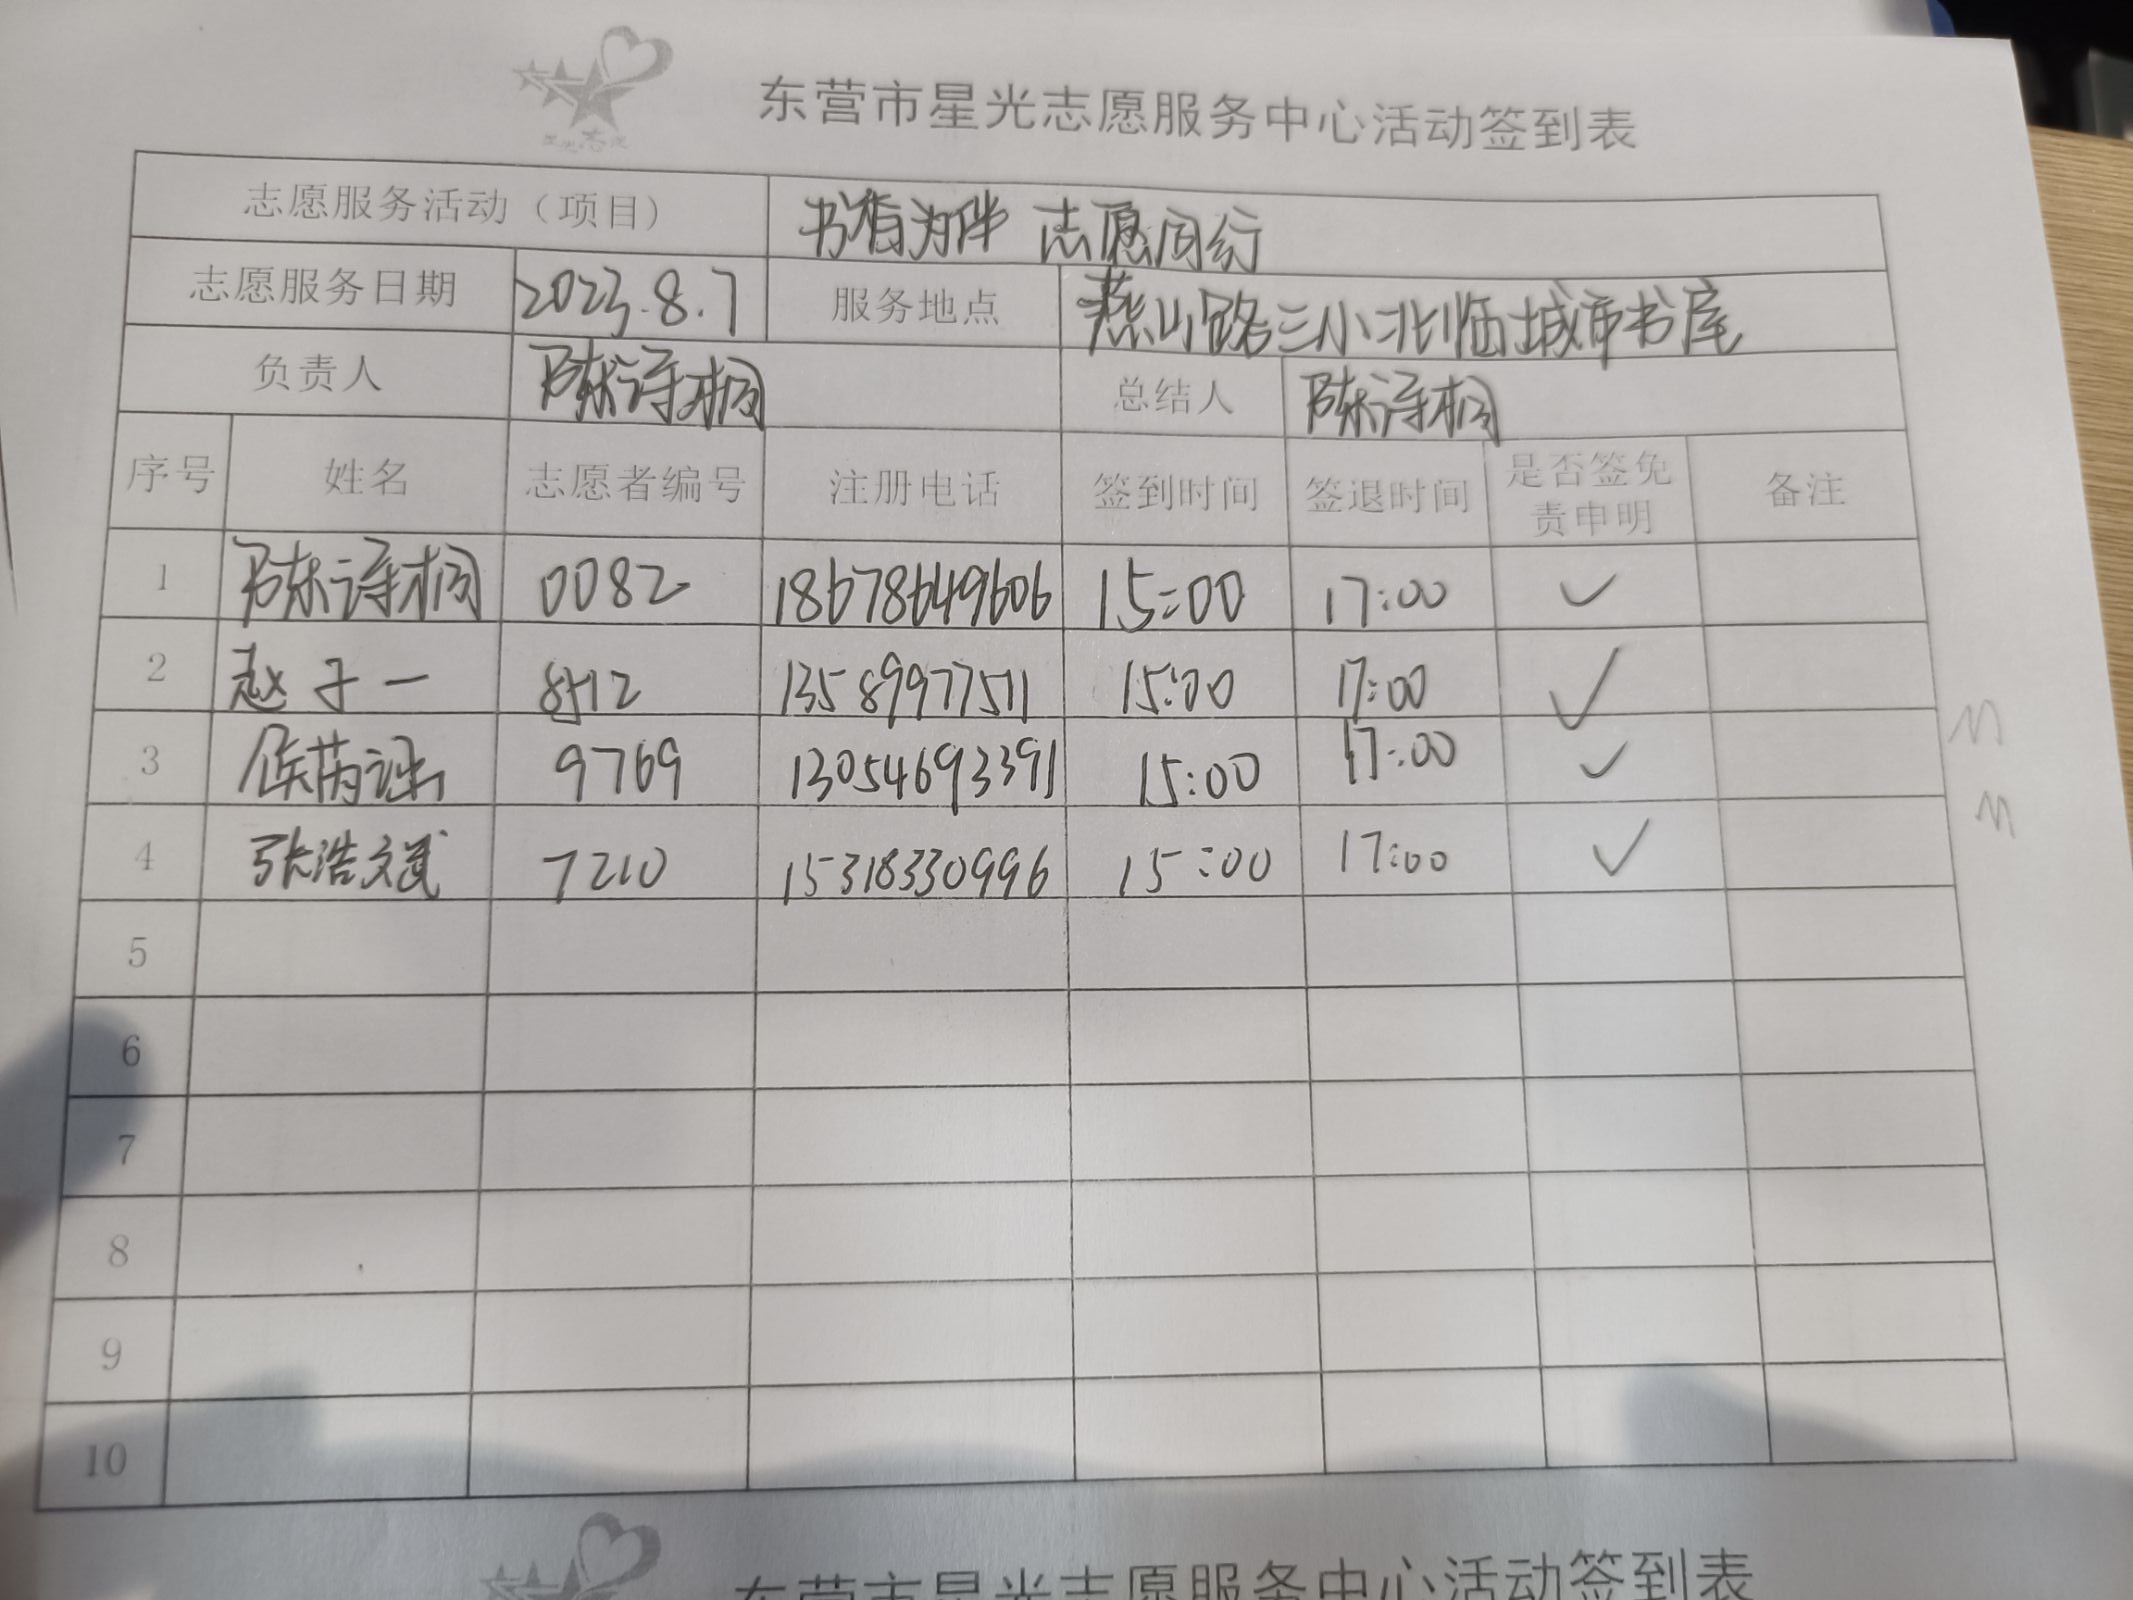 东营市星光志愿服务中心活动签到表
志愿服务活动（项目） 书香为伴 志愿同行
志愿服务日期 2023.8.7 服务地点 燕山路三小北临城市书屋
负责人 陈诗桐 总结人 陈诗桐
序号 姓名 志愿者编号 注册电话 签到时间 签退时间 是否签免责申明 备注
1 陈诗桐 0082 18678649606 15:00 17:00 ✓
2 赵子一 8512 13589977511 15:00 17:00 ✓
3 9769 13054693391 15:00 17:00 ✓
4 张浩文斌 7210 15318330996 15:00 17:00 ✓
5
6
7
8
9
10
东营市星光志愿服务中心活动签到表